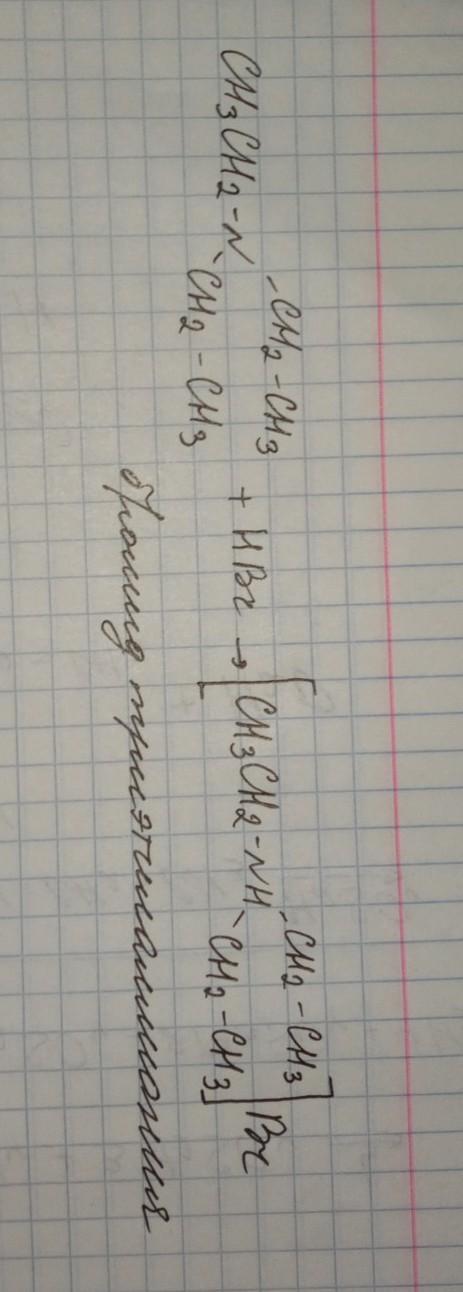 CH3CH2-N
-CH2-CH3
CH2-CH3
+ HBr → [CH3CH2-NH
-CH2-CH3
CH2-CH3] Br
бромид триэтиламмония